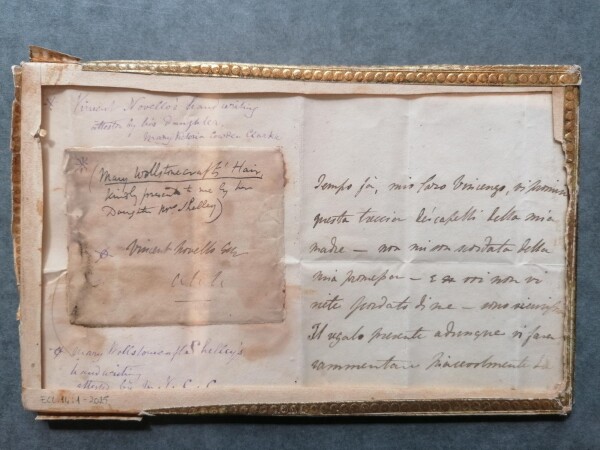 Vincent Novello's hand writing
attested by his daughter,
Mary Victoria Cowden Clarke
(Mary Wollstonecraft's Hair,
kindly presented to me by her
Daughter Mrs Shelley)
Vincent Novello Esq
Mary Wollstonecraft Shelley's
handwriting
attested by M. V. C. C.
Tempo fà, mio Caro Vincenzo, vi promisi
questa treccia dei capelli della mia
madre — non mi son scordata della
mia promessa — e se voi non vi
siete scordato di me — sono sicura
Il regalo presente adunque vi farà
rammentare piacevolmente